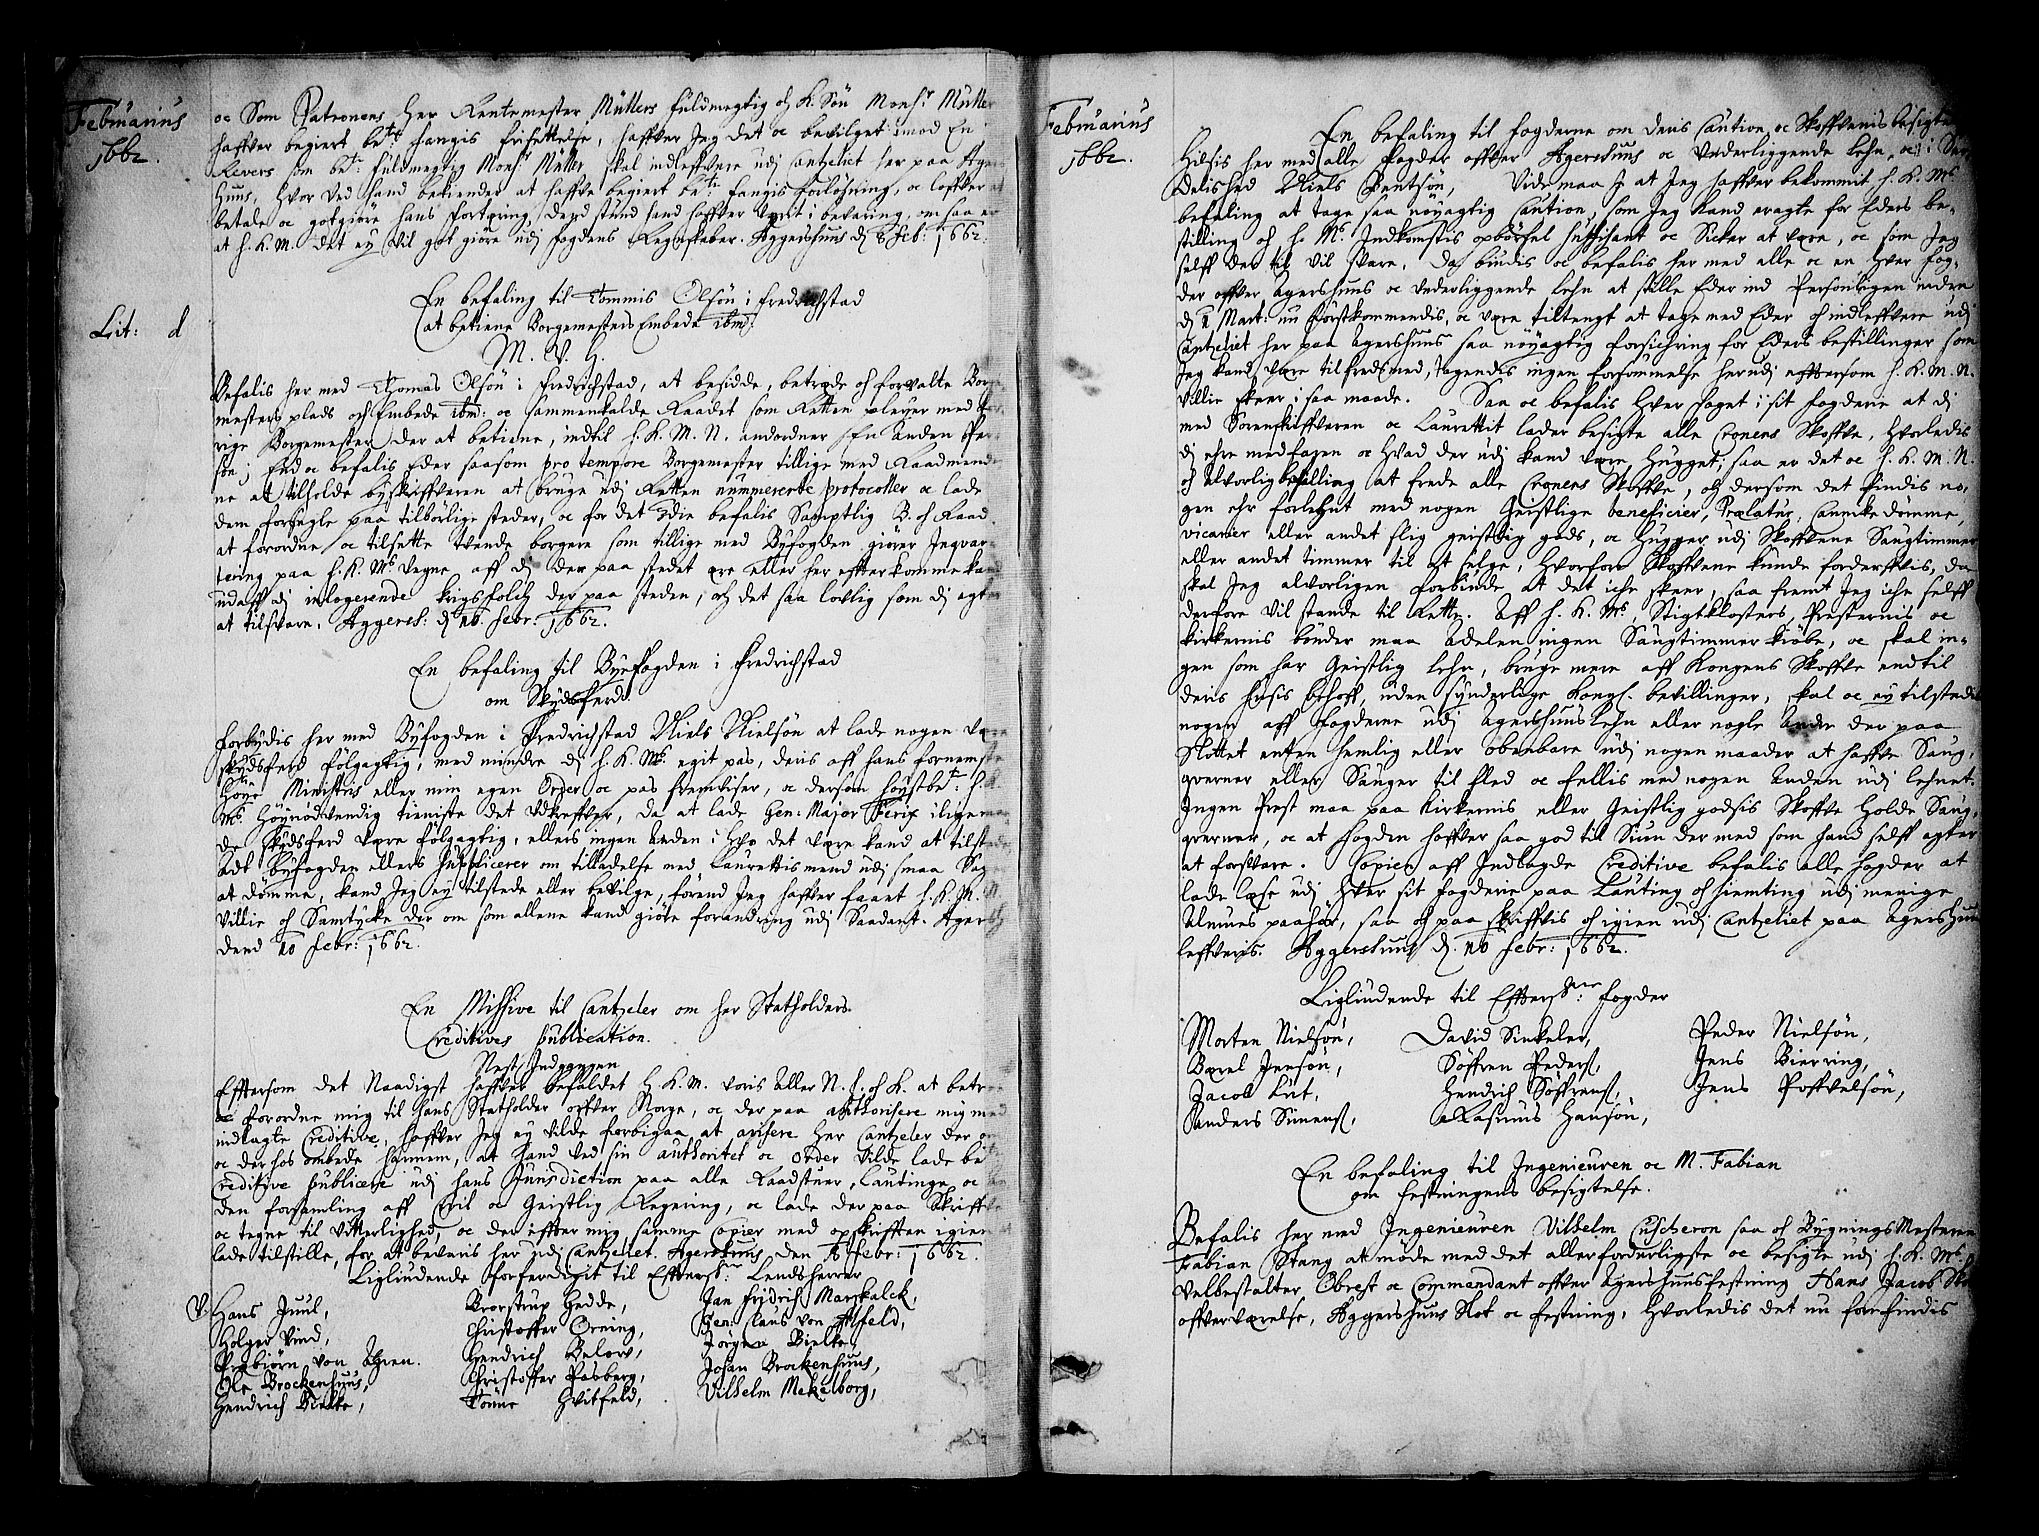 Februarius
1662.
oc Som Patronens Her Rentemester Müllers fuldmegtig och K. Sön Mons:r Müller
haffver begiert be:te fangis frisettelse, haffver Jeg det oc bevilget imod En
Revers som be:te fuldmegtig Mons:r Müller skal indleffvere udj Cantzeliet her paa Agers
Huus, hvor ved hand bekiender at haffve begiert be:te fangis forløsning, oc loffver at
betale oc gotgiöre hans fortæring, dend stund hand haffver veret i bevaring, om saa er
at H. K. M. det ey vil got giöre udj fogdens Regnskaber. Aggershuus d 8 Feb: 1662.
En befaling til Tommis Olsön i Fredrichstad
at betiene Borgemesters Embede ibm:
Lit: d
M. V. H.
Befalis her med Thomas Olsön i Fredrichstad, at besidde, betrede och forvalte Borge
mesters plads och Embede ibm: oc sammenkalde Raadet som Retten pleyer med
rige Borgemester der at betiene, indtil H. K. M. N. anordner En Anden Per
sön; End oc befalis Eder saasom pro tempore Borgemester tillige med Raadmend
ne at tilholde byskriffveren at bruge udj Retten nummererede protocoller oc lade
dem forsegle paa tilbörlige steder, oc for det 3die befalis Samptlig B. och Raad
at forordne oc tilsette tvende borgere som tillige med Byfogden giörer Inqvar
tering paa H. K. M:s vegne aff de der paa stedet ere eller her effter komme kand
udaff dj inlogerende krigsfolch der paa steden, och det saa lovlig som dj agter
at tilsvare. Aggersh: d 10. Febr: 1662.
En befaling til Byefogden i Fredrichstad
om Skydsferd.
Forbydis her med Byfogden i Fredrichstad Niels Nielsön at lade nogen være
skydsferd fölgagtig, med mindre dj H. K. M:s egit pas, deris aff hans fornemste
Høye Ministris eller min egen Order oc pas fremviser, oc dersom höystbe:te H. K.
M:s Höynödvendig tieniste det udkreffver, da at lade Gen: Major Ferix iligemaa
de skydsferd være fölgagtig, ellers ingen Anden i Hvo det være kand at tilstede
Adt Byfogden ellers supplicerer om tilladelse med Laurettismend udj smaa Sager
at dömme, kand Jeg ey tilstede eller bevilge, förend Jeg haffver faaet H. K. M. N
Villie och Samtycke der om som allene kand giöre forandring udj Saadant. Agersh
dend 10 Febr: 1662.
En Missive til Cantzeler om her Statholders
Creditives publication.
Nest Indgangen
Effttersom det Naadigst haffver befaldet H. K. M. voris Aller N. H. och K. at betro
oc forordne mig til hans Statholder offver Norge, oc der paa authorisere mig med
indlagte Creditive, haffver Jeg ey vilde forbigaa at avisere Her Cantzeler der om
oc der hos ombede hannem, at hand ved sin authoritet oc order vilde lade be:te
Creditive publicere udj hans Jurisdiction paa alle Raadstuer, Lautinge, oc
den forsamling aff Civil oc Geistlig Regiering, oc lade der paa Skriffte
oc tegne til vitterlighed, oc der effter mig samme Copier med opskrifften igien
lade tilstille, for at bevaris her udj Cantzeliet. Agershuus, den 10 Febr: 1662.
Liglüdende forferdiget til Effters:ne Lendsherrer
V. Hans Juul,
Holger Vind,
Prebiörn von Ahnen.
Ole Brockenhuus,
Hendrich Bielke,
Brorstrup Gedde,
Christoffer Örning,
Hendrich Below,
Christoffer Pasberg,
Tönne Hvitfeld,
Jan Fridrich Marskalck,
Gen: Claus von Alfeld,
Jörgen Bielke
Johan Brockenhuus,
Vilhelm Mekelborg,
Februarius
1662.
En befaling til fogderne om deris Caution, oc Skoffvenis besigtelse
Hilsis her med alle Fogder offver Agershuus oc underliggende Lehn, oc i
Delished Niels Bentsön, Vide maa I at Jeg haffver bekommit H. K. M:s
befaling at tage saa nöyagtig Caution, som Jeg kand eragte for Eders be-
stilling och H. M:s Indkomstis opbörsel suffisant oc Sicker at være, oc som Jeg
selff der til vil svare. Da biudis oc befalis her med alle oc en hver fog-
der offver Agershuus oc underliggende Lehn at stille Eder ind Personligen inden
d 1 Mart: nu förstkommendis, oc være tiltengt at tage med Eder och indleffvere udj
Cantzeliet her paa Agershuus saa nöyagtig forsichring for Eders bestillinger som
Jeg kand være tilfreds med, tagendis ingen forsömmelse herudj effttersom H. K. M. N.
Villie skeer i saa maade. Saa oc befalis hver foget i sit fogderie at dj
med Sorenskriffveren oc Laurettit lader besigte alle Cronens Skoffve, Hvorledis
dj ehre medfaren oc Hvad der udj kand være Hugget, saa er det oc H. K. M. N.
och alvorlig befalling at frede alle Cronens Skoffve, och dersom det findis no-
gen ehr forlehnt med nogen Geistlige beneficier, Prælatur, Cannicke dömme,
vicarier eller andet slig geistlig gods, oc hugger udj Skoffvene Saugtimmer
eller andet timmer til at selge, Hvorfore Skoffvene kunde fordærffvis, da
skal Jeg alvorligen forbiude at det iche skeer, saa fremt Jeg iche selff
derfore vil stande til Rette. Aff H. K. M:s, Stigtklosters, Presternis oc
kirkernis bönder maa Adelen ingen Saugtimmer kiöbe, oc skal in-
gen som har Geistlig Lehn, bruge mere aff Kongens Skoffve end til
deris huusis behoff, uden synderlige Kongl. bevillinger, skal oc ey tilstedis
nogen aff fogderne udj Agershuus Lehn eller nogle Andre der paa
Slottet enten hemlig eller obenbare udj nogen maader at haffve Saug-
qverner eller Sauger til fled oc fellis med nogen Anden udj Lehnet.
Ingen Prest maa paa Kirkernis eller Geistlig godsis Skoffve Holde Saug-
qverner, oc at Fogden haffver saa god til Siun der med som hand selff agter
at forsvare. Copier aff Indlagde Creditive befalis alle fogder at
lade læse udj hver sit fogderie paa Lauting och hiemting udj menige
Almues paahör, saa och paa skriffvis och igien udj Cantzeliet paa Agershuus
leffveris. Aggershuus d. 10 Febr: 1662.
Liglüdende til Effters:ne Fogder
Morten Nielsön,
Boxel Jensön,
Jacob Lut,
Anders Simens.,
David Sinkeler,
Söffren Peders.,
Hendrich Söffrens.,
Rasmus Hansön,
Peder Nielsön,
Jens Bierring,
Jens Poffvelsön,
En befaling til Ingenieuren oc M. Fabian
om Festningens besigtelse.
Befalis her med Ingenieuren Vilhelm Cuscheron saa och Bygnings Mesteren
Fabian Stang at möde med det allerforderligste oc besigte udj H. K. M:s
Velbestalter Obrest oc Commendant offver Agershuus festning Hans Jacob
offververelse, Aggershuus Slot oc festning, Hvorledis det nu forefindis